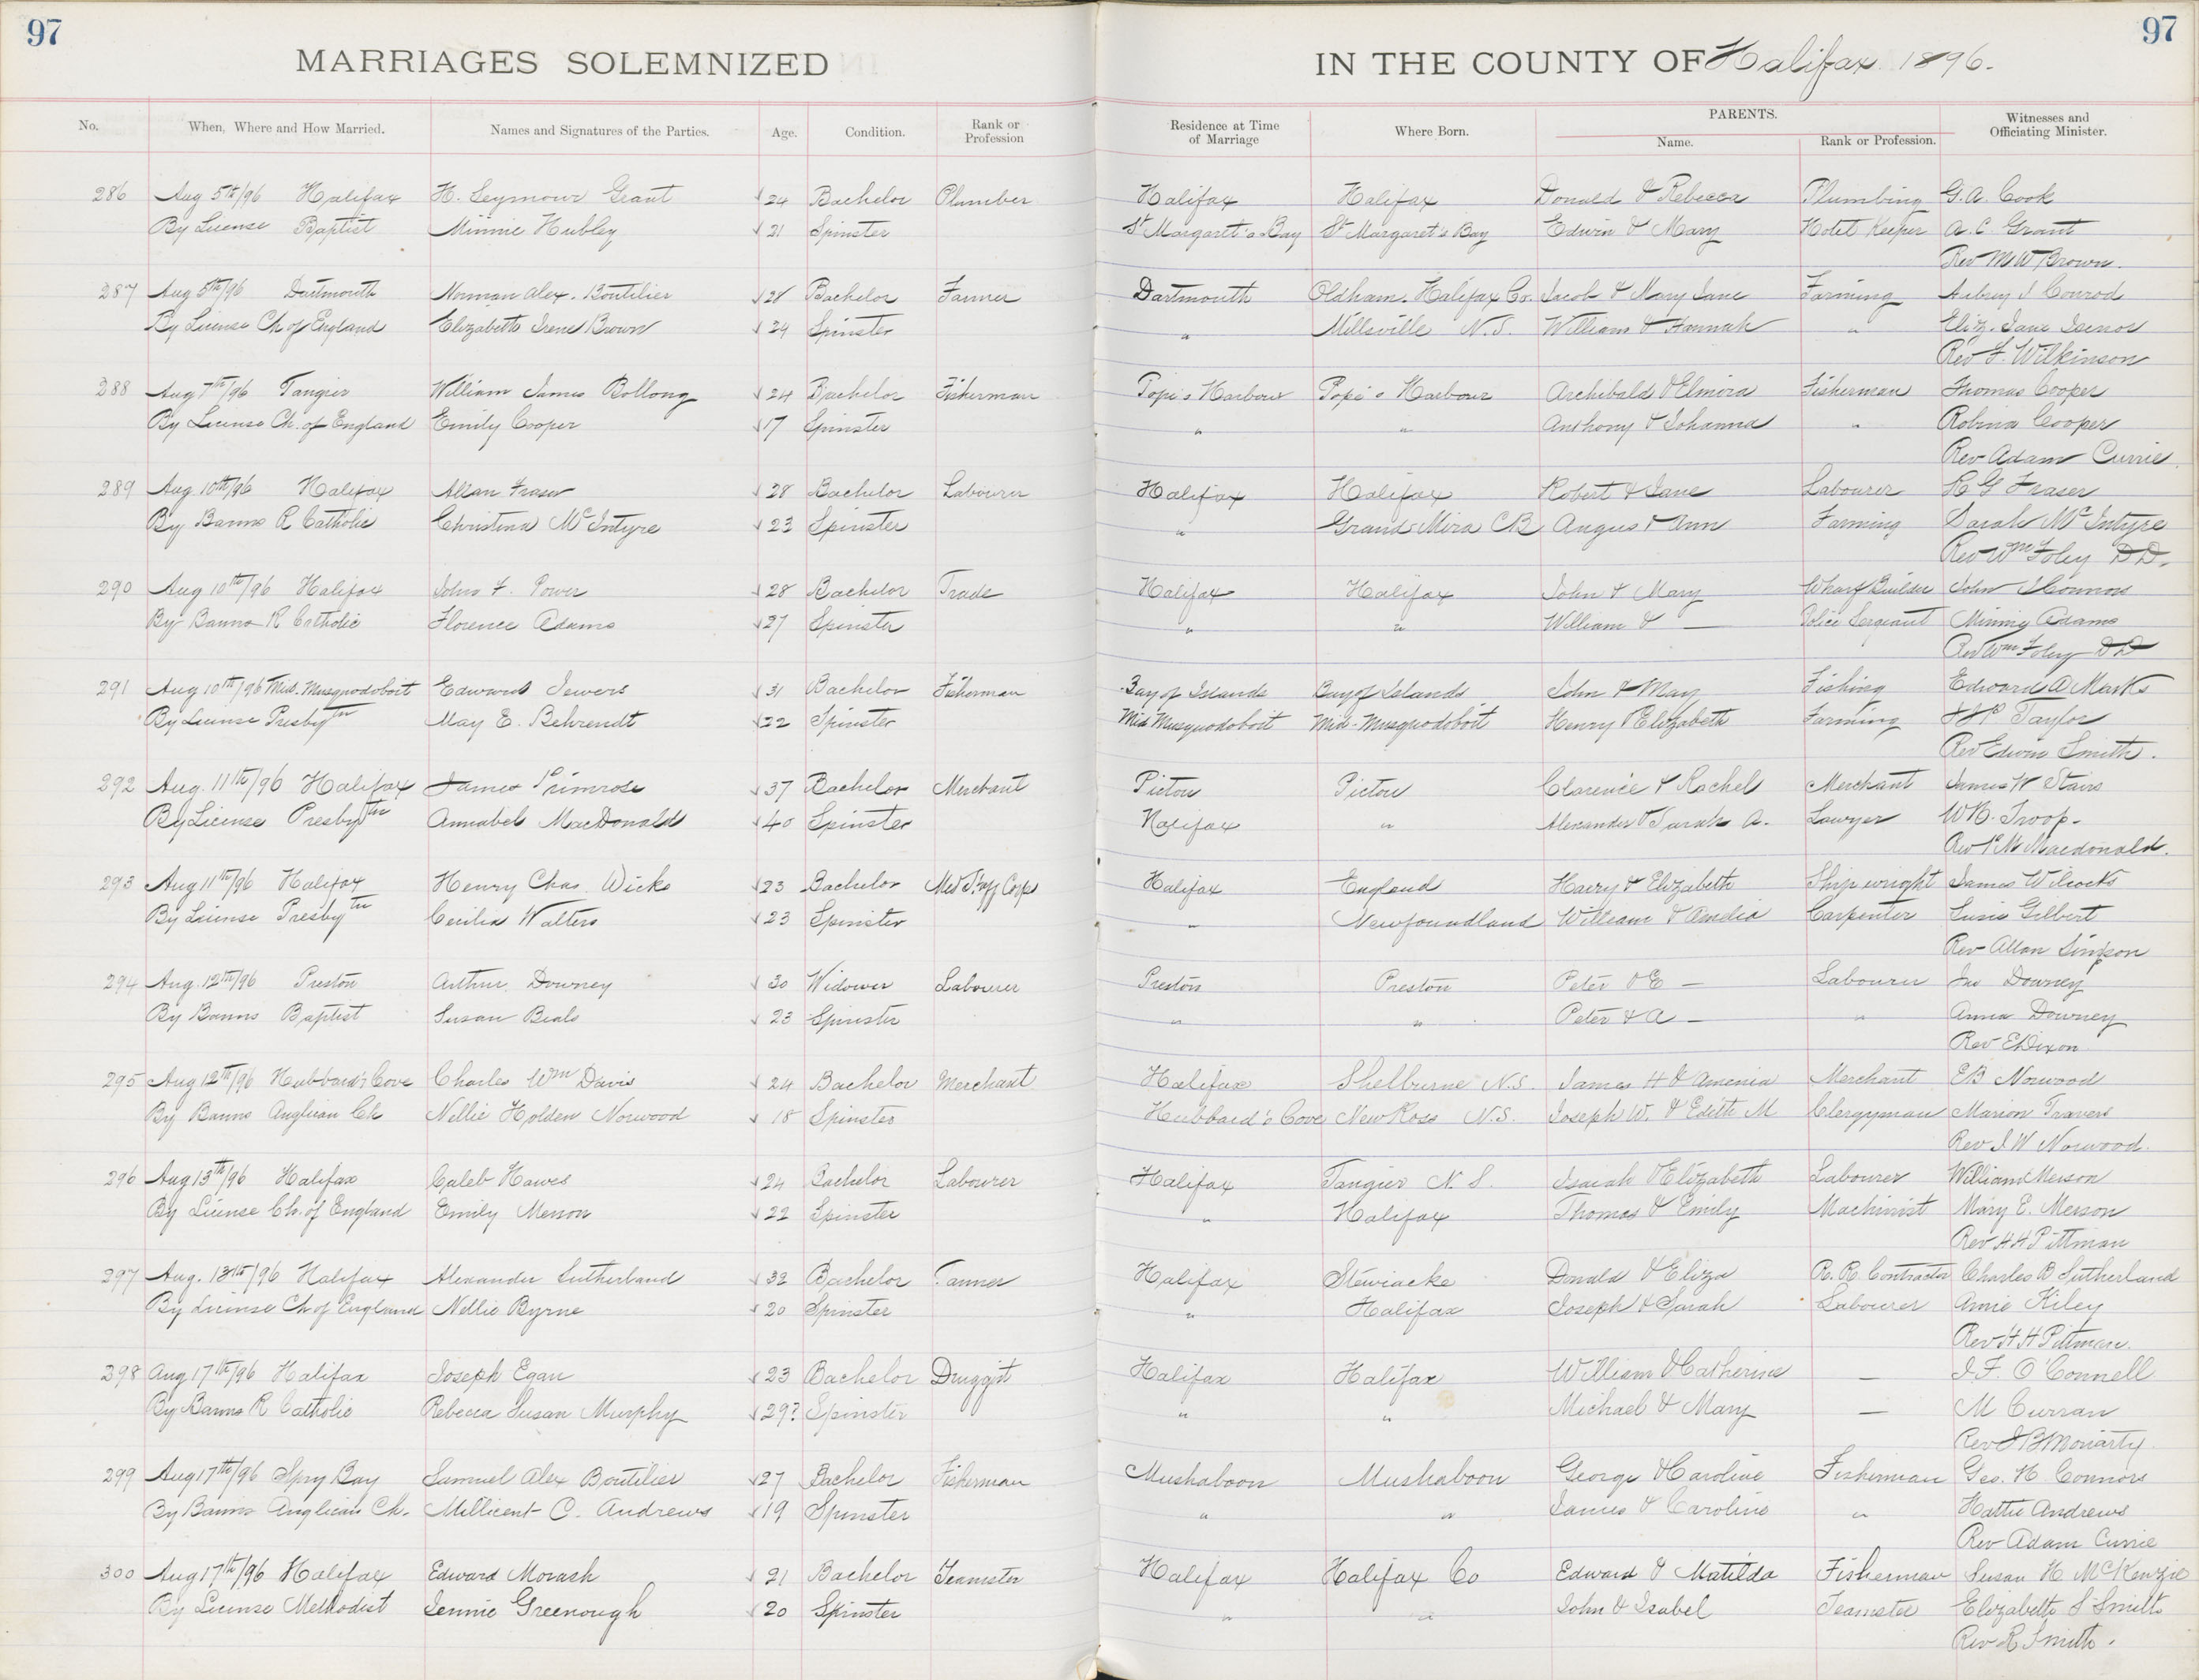 97
97
MARRIAGES SOLEMNIZED IN THE COUNTY OF Halifax 1896.
No. When, Where and How Married. Names and Signatures of the Parties. Age. Condition. Rank or Profession Residence at Time of Marriage Where Born. PARENTS. Name. Rank or Profession. Witnesses and Officiating Minister.
286 Aug 5th/96 Halifax H. Seymour Grant 24 Bachelor Plumber Halifax Halifax Donald & Rebecca Plumbing G.A. Cook
By License Baptist Minnie Hubley 21 Spinster St Margaret's Bay St Margaret's Bay Edwin & Mary Hotel Keeper A.C. Grant
Rev M W Brown.
287 Aug 5th/96 Dartmouth Norman Alex. Boutilier 28 Bachelor Farmer Dartmouth Oldham. Halifax Co. Jacob & Mary Jane Farming Aubrey I Conrod
By License Ch of England Elizabeth Irene Brown 24 Spinster " Millsville N.S. William & Hannah " Eliz. Jane Isenor
Rev F. Wilkinson
288 Aug 7th/96 Tangier William James Bollong 24 Bachelor Fisherman Pope's Harbour Pope's Harbour Archibald & Elmira Fisherman Thomas Cooper
By License Ch. of England Emily Cooper 17 Spinster " " Anthony & Johanna " Robina Cooper
Rev Adam Currie.
289 Aug 10th/96 Halifax Allan Fraser 28 Bachelor Labourer Halifax Halifax Robert & Jane Labourer R G Fraser
By Banns R Catholic Christina McIntyre 23 Spinster " Grand Mira CB Angus & Ann Farming Sarah McIntyre
Rev Wm Foley DD.
290 Aug 10th/96 Halifax John F. Power 28 Bachelor Trade Halifax Halifax John & Mary Wharf Builder John Connors
By Banns R Catholic Florence Adams 27 Spinster " " William & — Police Sergeant Minnie Adams
Rev Wm Foley DD
291 Aug 10th/96 Mid. Musquodoboit Edward Jewers 31 Bachelor Fisherman Bay of Islands Bay of Islands John & May Fishing Edward A Marks
By License Presbytn May E. Behrendt 22 Spinster Mid Musquodoboit Mid-Musquodoboit Henry & Elizabeth Farming Taylor
Rev Edwin Smith.
292 Aug. 11th/96 Halifax James Primrose 37 Bachelor Merchant Pictou Pictou Clarence & Rachel Merchant James W Stairs
By License Presbytn Annabel MacDonald 40 Spinster Halifax " Alexander & Sarah A. Lawyer W B. Troop.
Rev P M Macdonald.
293 Aug 11th/96 Halifax Henry Chas. Wicks 23 Bachelor Med Staff Corps Halifax England Harry & Elizabeth Shipwright James Wilcocks
By License Presbytn Cecilia Walters 23 Spinster " Newfoundland William & Amelia Carpenter Susie Gilbert
Rev Allan Simpson
294 Aug. 12th/96 Preston Arthur Downey 30 Widower Labourer Preston Preston Peter & E — Labourer Jas Downey
By Banns Baptist Susan Beals 23 Spinster " " Peter & A — " Annie Downey
Rev E Dixon
295 Aug 12th/96 Hubbard's Cove Charles Wm Davis 24 Bachelor Merchant Halifax Shelburne N.S. James H & Amenia Merchant E B Norwood
By Banns Anglican Ch Nellie Holden Norwood 18 Spinster Hubbard's Cove New Ross N.S. Joseph W. & Edith M Clergyman Marion Travers
Rev J W Norwood.
296 Aug 13th/96 Halifax Caleb Hawes 24 Bachelor Labourer Halifax Tangier N.S. Isaiah & Elizabeth Labourer William Merson
By License Ch. of England Emily Merson 22 Spinster " Halifax Thomas & Emily Machinist Mary E. Merson
Rev H H Pittman
297 Aug. 13th/96 Halifax Alexander Sutherland 32 Bachelor Tanner Halifax Stewiacke Donald & Eliza R.R. Contractor Charles B Sutherland
By License Ch of England Nellie Byrne 20 Spinster " Halifax Joseph & Sarah Labourer Annie Kiley
Rev H H Pittman.
298 Aug 17th/96 Halifax Joseph Egan 23 Bachelor Druggist Halifax Halifax William & Catherine — J.F. O'Connell
By Banns R Catholic Rebecca Susan Murphy 29? Spinster " " Michael & Mary — M Curran
Rev J B Moriarty.
299 Aug 17th/96 Spry Bay Samuel Alex Boutilier 27 Bachelor Fisherman Mushaboon Mushaboon George & Caroline Fisherman Geo. H. Connors
By Banns Anglican Ch. Millicent C. Andrews 19 Spinster " " James & Caroline " Hattie Andrews
Rev Adam Currie
300 Aug 17th/96 Halifax Edward Morash 21 Bachelor Teamster Halifax Halifax Co Edward & Matilda Fisherman Susan H McKenzie
By License Methodist Jennie Greenough 20 Spinster " " John & Isabel Teamster Elizabeth S Smith
Rev R Smith.